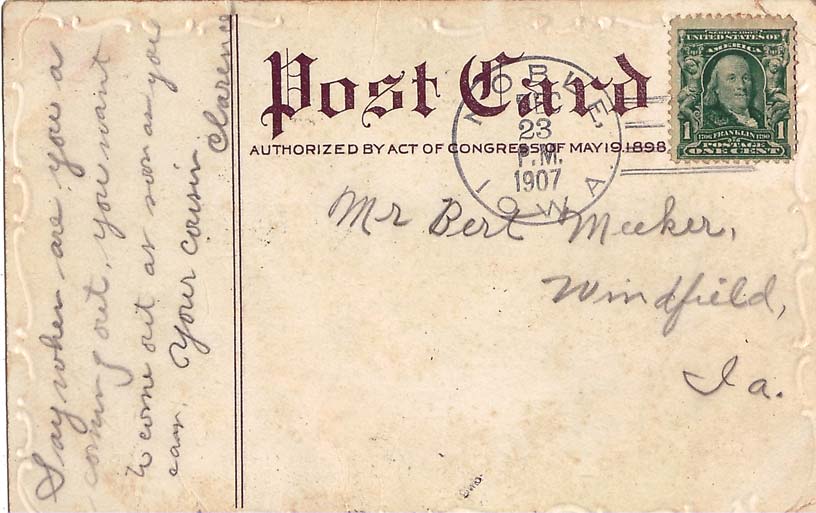 Say when are you a
coming out, you want
to come out as soon as you
can. Your cousin
Clarence
Post Card
AUTHORIZED BY ACT OF CONGRESS OF MAY 19.1898
NOBLE,
23
P.M.
1907
IOWA.
SERIES 1902
UNITED STATES OF
AMERICA
1 1706 FRANKLIN 1790 1
POSTAGE
ONE CENT
Mr Bert Meeker,
Windfield,
Ia.